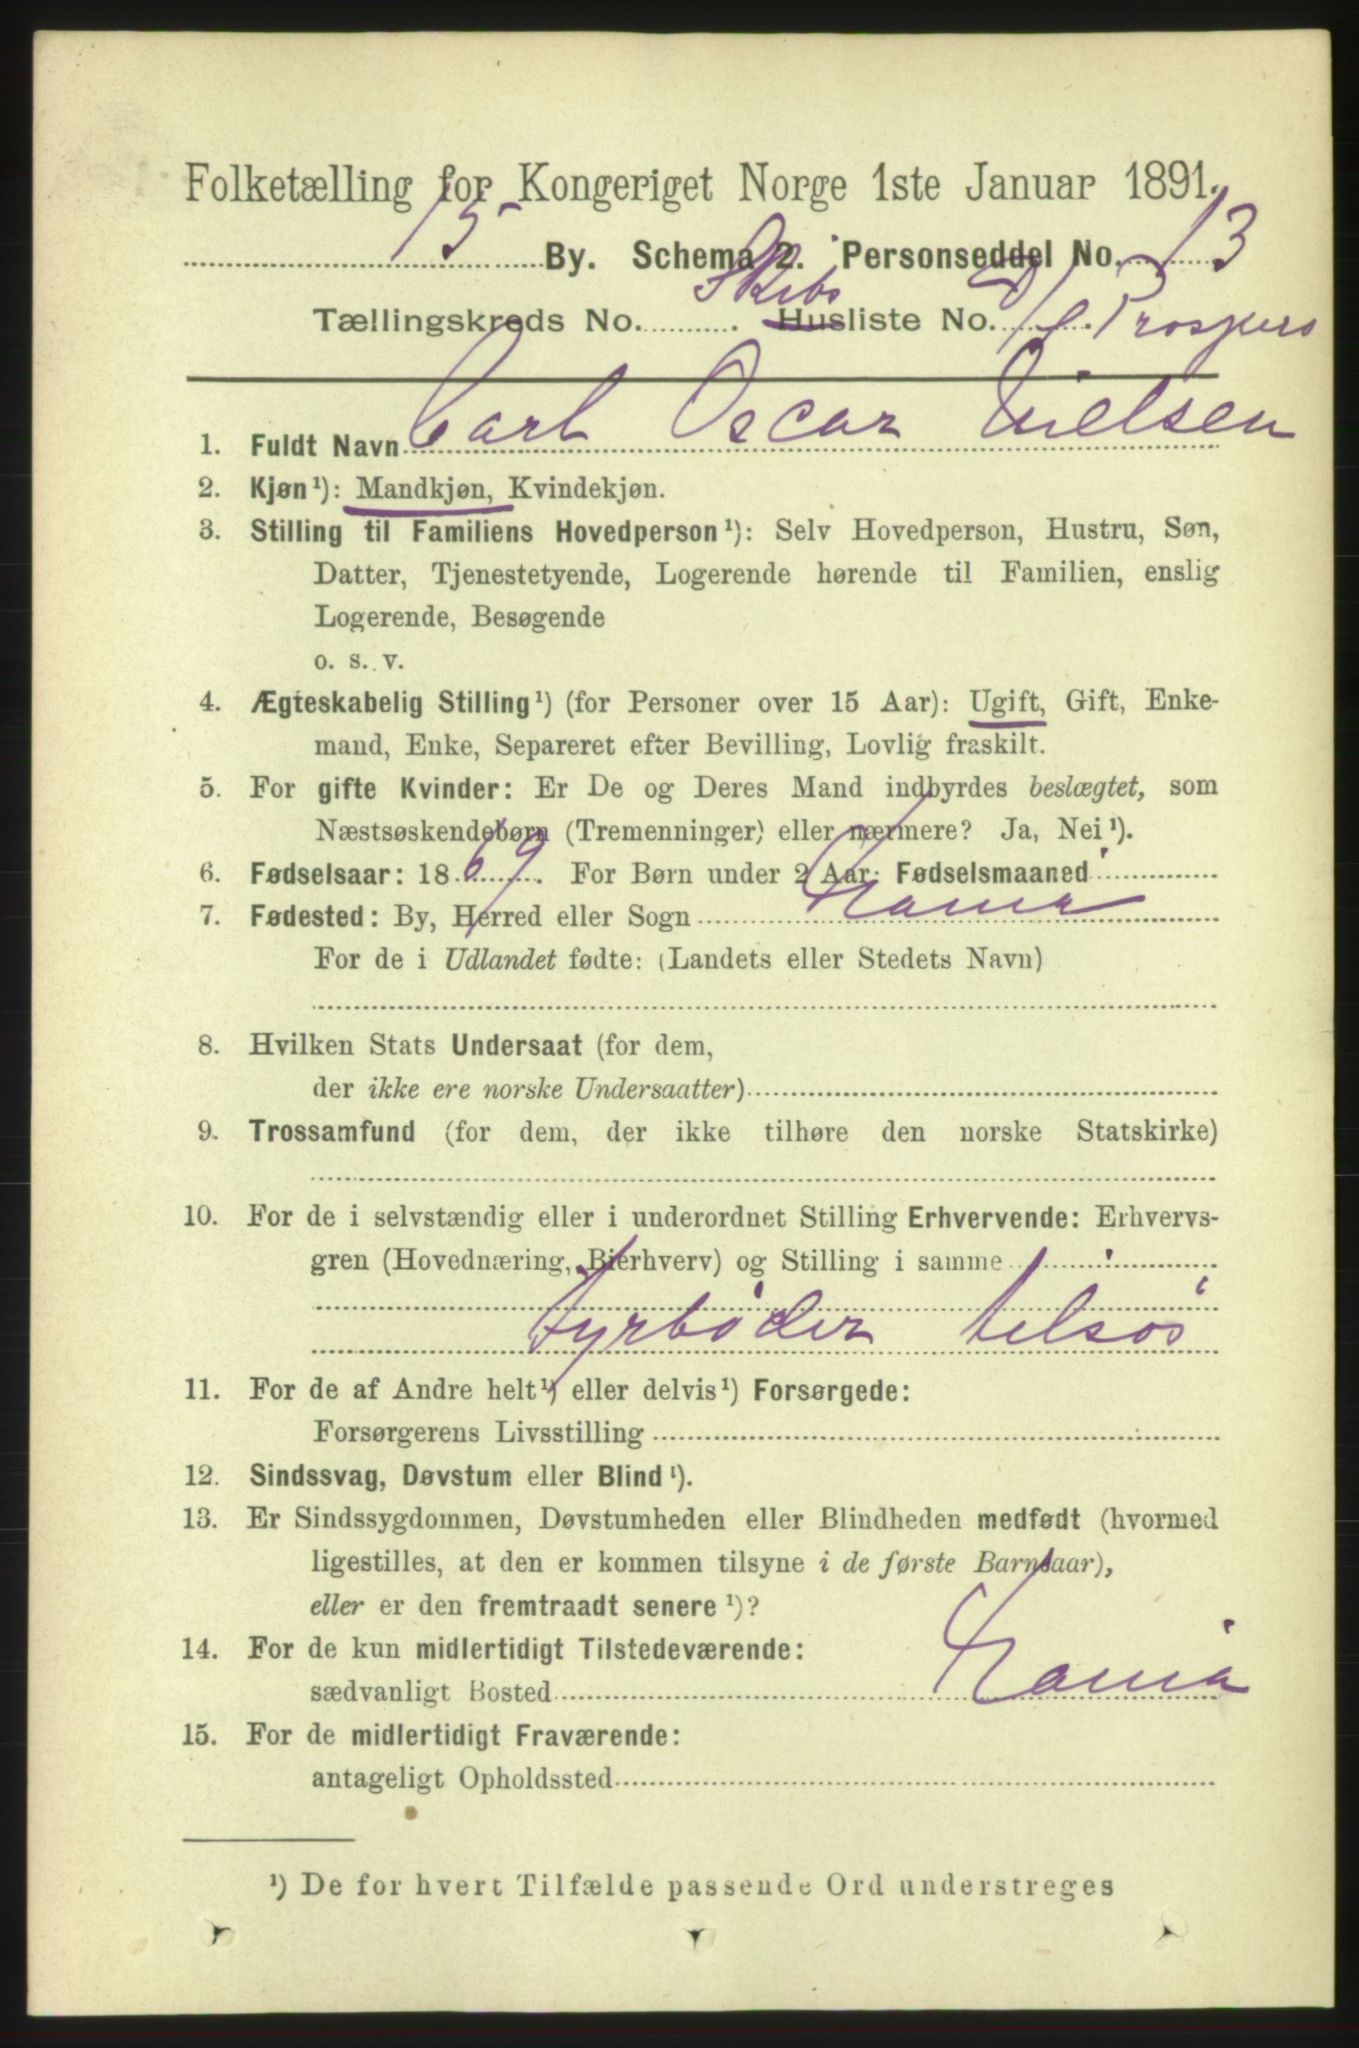 Folketælling for Kongeriget Norge 1ste Januar 1891.
15 By. Schema 2. Personseddel No. 13
Tællingskreds No. Skibs Husliste No. D/S Prospero
1. Fuldt Navn Carl Oscar Nielsen
2. Kjøn¹): Mandkjøn, Kvindekjøn.
3. Stilling til Familiens Hovedperson¹): Selv Hovedperson, Hustru, Søn,
Datter, Tjenestetyende, Logerende hørende til Familien, enslig
Logerende, Besøgende
o. s. v.
4. Ægteskabelig Stilling¹) (for Personer over 15 Aar): Ugift, Gift, Enke-
mand, Enke, Separeret efter Bevilling, Lovlig fraskilt.
5. For gifte Kvinder: Er De og Deres Mand indbyrdes beslægtet, som
Næstsøskendebørn (Tremenninger) eller nærmere? Ja, Nei¹).
6. Fødselsaar: 1869. For Børn under 2 Aar: Fødselsmaaned
7. Fødested: By, Herred eller Sogn Xania
For de i Udlandet fødte: (Landets eller Stedets Navn)
8. Hvilken Stats Undersaat (for dem,
der ikke ere norske Undersaatter)
9. Trossamfund (for dem, der ikke tilhøre den norske Statskirke)
10. For de i selvstændig eller i underordnet Stilling Erhvervende: Erhvervs-
gren (Hovednæring, Bierhverv) og Stilling i samme
Fyrbøder tilsøs
11. For de af Andre helt¹) eller delvis¹) Forsørgede:
Forsørgerens Livsstilling
12. Sindssvag, Døvstum eller Blind¹).
13. Er Sindssygdommen, Døvstumheden eller Blindheden medfødt (hvormed
ligestilles, at den er kommen tilsyne i de første Barnsaar),
eller er den fremtraadt senere¹)?
14. For de kun midlertidigt Tilstedeværende:
sædvanligt Bosted Xania
15. For de midlertidigt Fraværende:
antageligt Opholdssted
¹) De for hvert Tilfælde passende Ord understreges